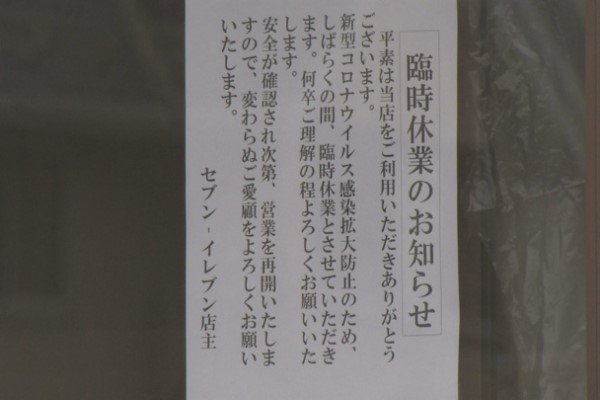 臨時休業のお知らせ
平素は当店をご利用いただきありがとう
ございます。
新型コロナウイルス感染拡大防止のため、
しばらくの間、臨時休業とさせていただき
ます。何卒ご理解の程よろしくお願いいた
します。
安全が確認され次第、営業を再開いたしま
すので、変わらぬご愛顧をよろしくお願い
いたします。
セブン‐イレブン店主